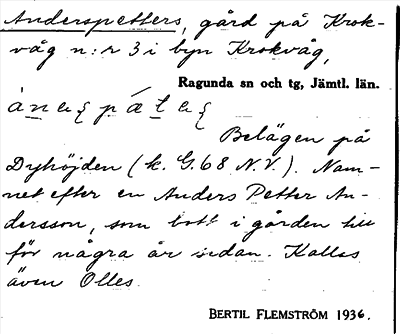 Anderspetters, gård på Krok-
våg n:r 3 i byn Krokvåg,
Ragunda sn och tg, Jämtl. län.
Belägen på
Dyhöjden (k. G.68 N.V.). Nam-
net efter en Anders Petter An-
dersson, som bott i gården till
för några år sedan. Kallas
även Olles.
BERTIL FLEMSTRÖM 1936.